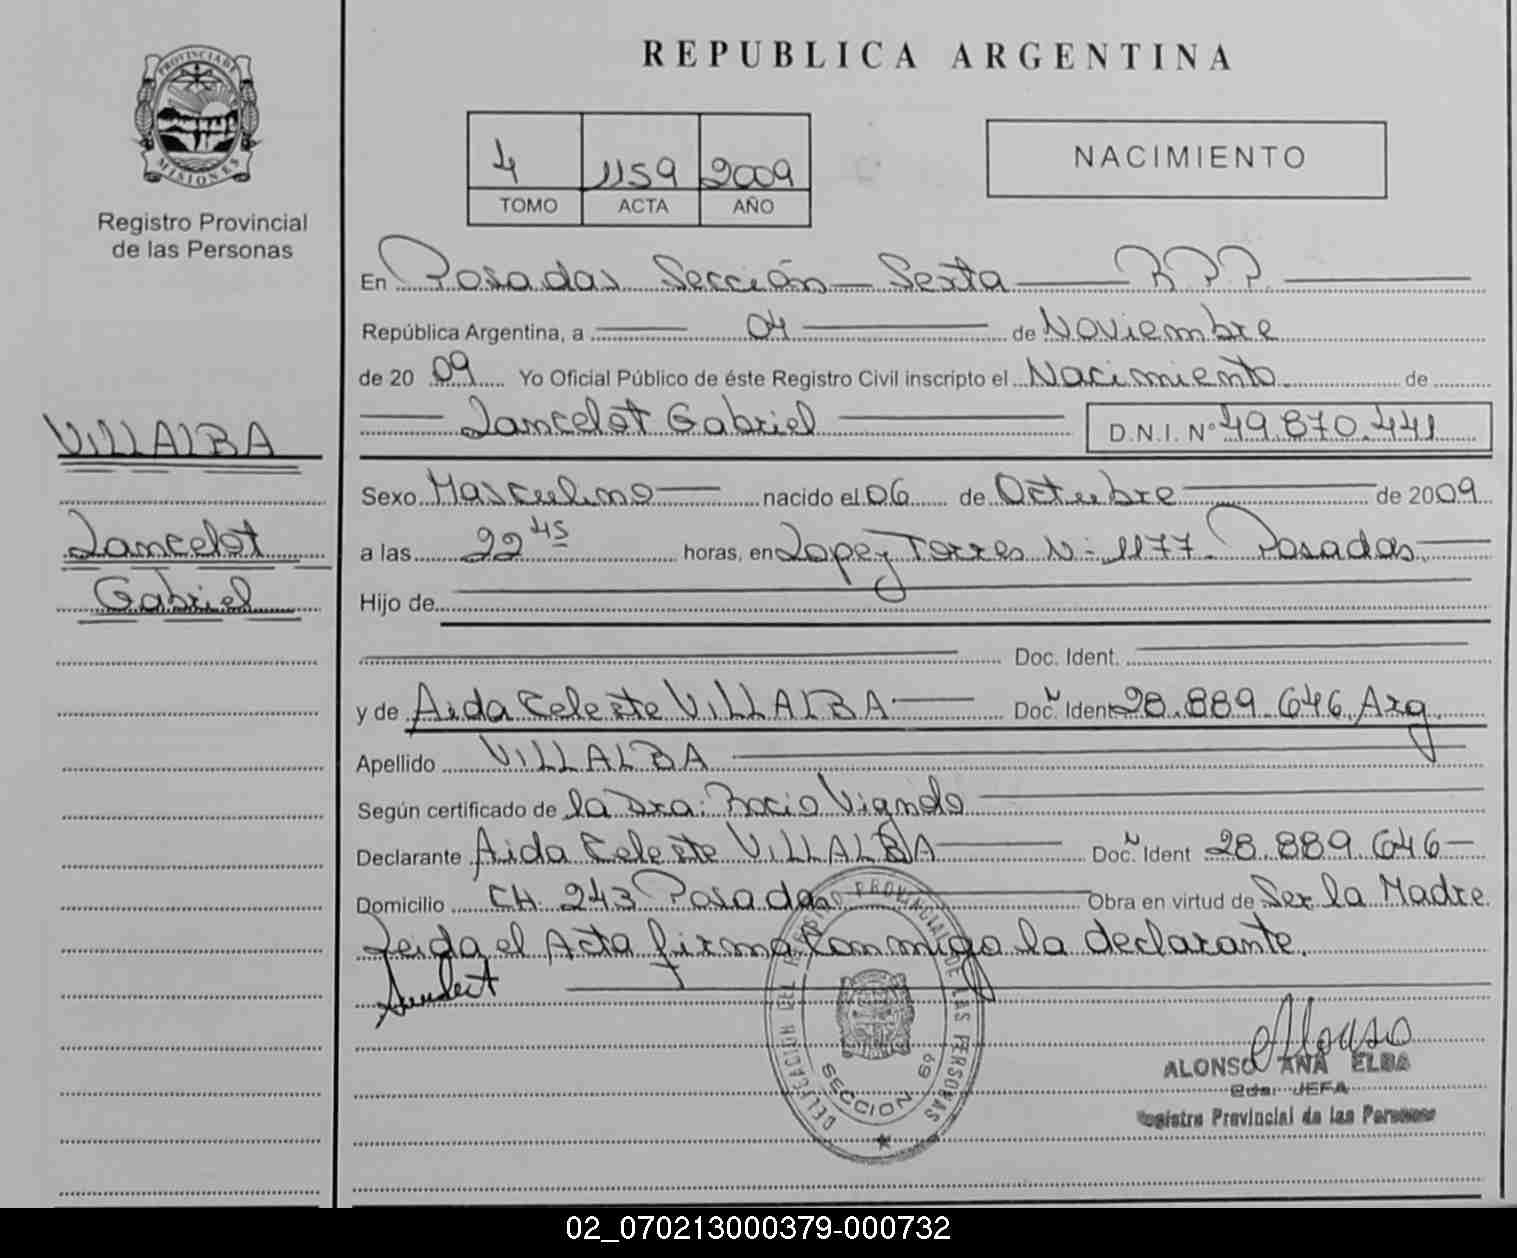 PROVINCIA DE
MISIONES
Registro Provincial
de las Personas
VILLALBA
Lancelot
Gabriel
REPUBLICA ARGENTINA
4 1159 2009
TOMO ACTA AÑO
NACIMIENTO
En Posadas Sección Sexta R.P.P.
República Argentina, a 04 de Noviembre
de 2009 Yo Oficial Público de éste Registro Civil inscripto el Nacimiento de
Lancelot Gabriel D.N.I. N° 49.870.441
Sexo Masculino nacido el 06 de Octubre de 2009
a las 22 45 horas, en Lopez Torres N: 1177 Posadas
Hijo de
Doc. Ident.
y de Aida Celeste VILLALBA Doc. Ident 28.889.646 Arg.
Apellido VILLALBA
Según certificado de la Dra: Rocio
Declarante Aida Celeste VILLALBA Doc. Ident 28.889.646
Domicilio CH. 243 Posadas Obra en virtud de Ser la Madre
Leida el Acta firma conmigo la declarante.
DELEGACION DEL REGISTRO PROVINCIAL DE LAS PERSONAS
SECCION 6º
Alonso
ALONSO ANA ELBA
JEFA
Registro Provincial de las Personas
02_070213000379-000732